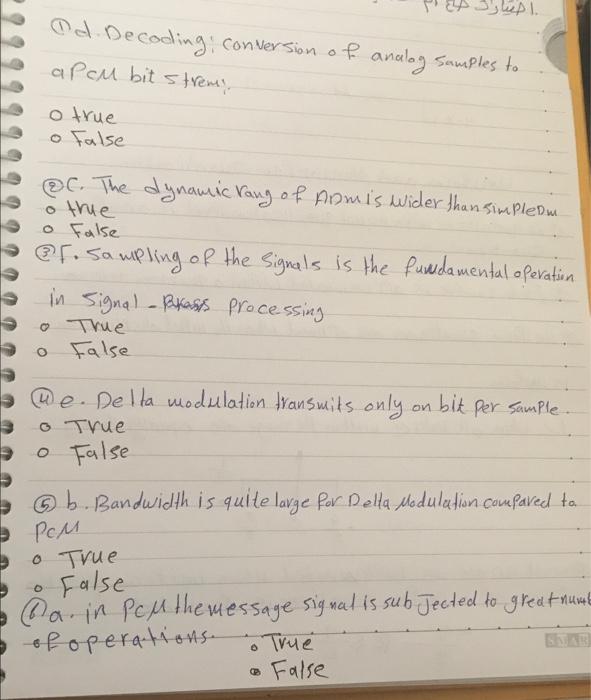 ① d. Decoding: conversion of analog samples to
a PCM bit strem:
o true
o False
② C. The dynamic rang of ADM is wider than simple DM
o true
o False
③ F. sampling of the signals is the fundamental operation
in signal - processing
o True
o False
④ e. Delta modulation transmits only on bit per sample.
o True
o False
⑤ b. Bandwidth is quite large for Delta Modulation compared to
PCM
o True
o False
⑥ a. in PCM the message signal is subjected to great numb
of operations.
o True
o False